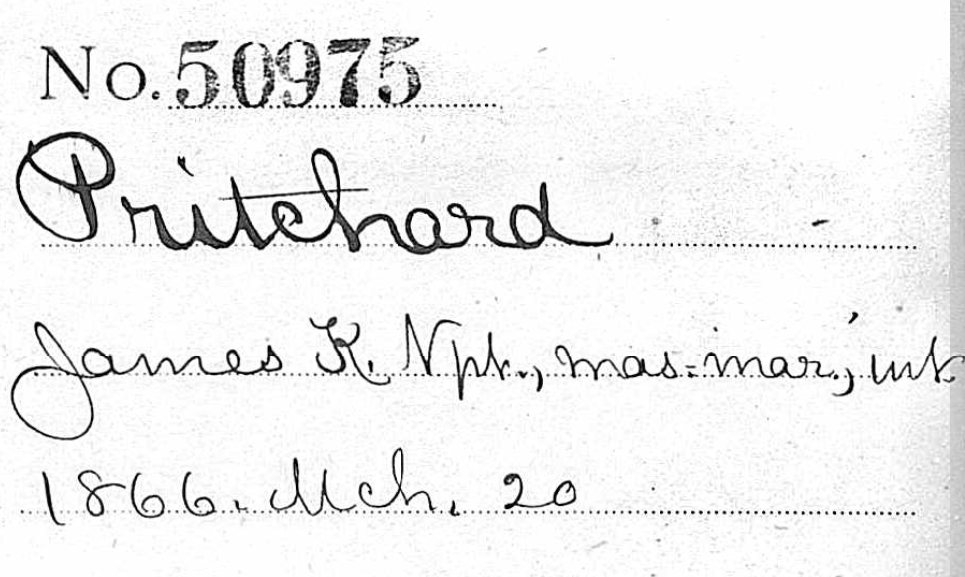 No. 50975
Pritchard
James K. Npt., mas.-mar., int
1866. Mch. 20